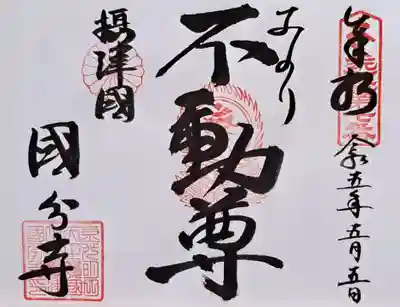 奉拝
令五年五月五日
みのり
不動尊
摂津國
國分寺